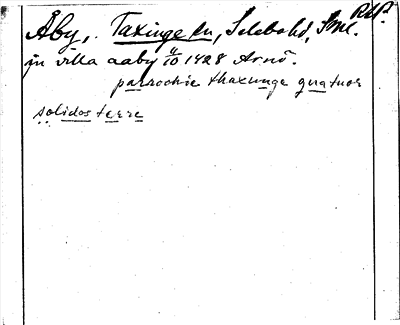 RAP.
Åby, Taxinge sn, Selebohd, Sml.
in villa aaby 4/10 1428 Arnö.
parrochie thaxunge quatuor
solidos terre